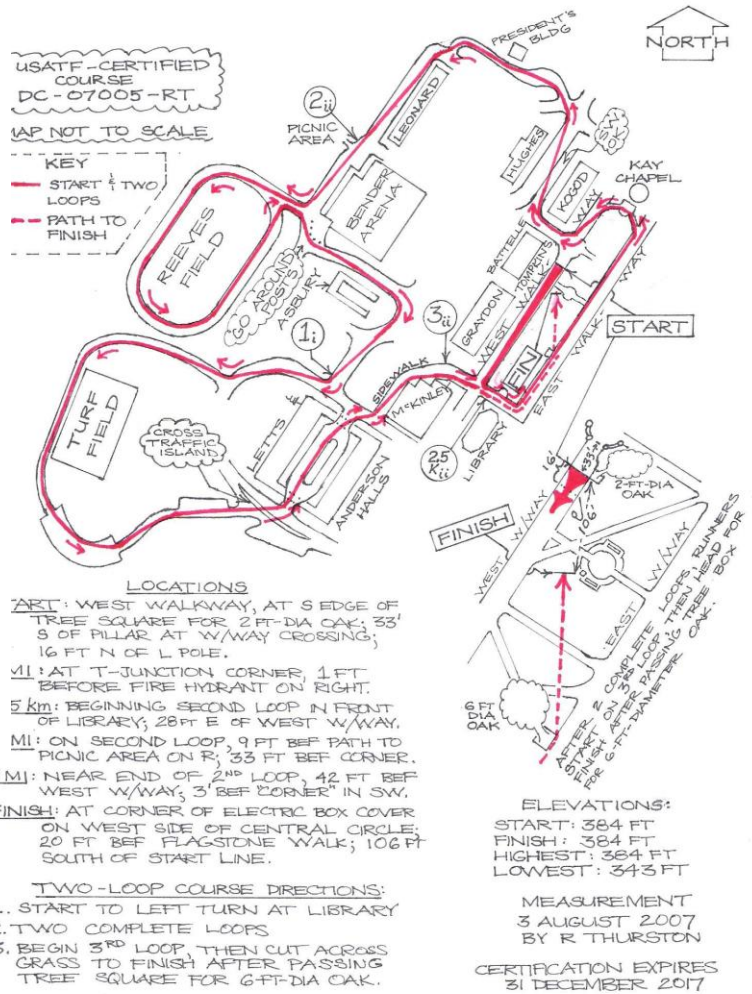 USATF-CERTIFIED
COURSE
DC-07005-RT
MAP NOT TO SCALE
KEY
START & TWO
LOOPS
PATH TO
FINISH
NORTH
PRESIDENT'S
BLDG
2ii
PICNIC
AREA
LEONARD
HUGHES
SM OK
KOGOD
KAY
CHAPEL
WAY
BENDER
ARENA
REEVES
FIELD
GO AROUND
POSTS
ASBURY
BATTELLE
TOMPKINS
WALK-
GRAYDON
WEST
START
WAY
WALK-
EAST
FIN
1i
3ii
SIDEWALK
McKINLEY
LIBRARY
25
Kii
TURF
FIELD
CROSS
TRAFFIC
ISLAND
LETTS
ANDERSON
HALLS
16'
33'
2-FT-DIA
OAK
106'
FINISH
WEST W/WAY
EAST W/WAY
6 FT
DIA
OAK
AFTER 2 COMPLETE LOOPS, RUNNERS
START ON 3RD LOOP THEN HEAD FOR
FINISH AFTER PASSING TREE BOX
FOR 6-FT-DIAMETER OAK.
LOCATIONS
ART: WEST WALKWAY, AT S EDGE OF
TREE SQUARE FOR 2 FT-DIA OAK; 33'
S OF PILLAR AT W/WAY CROSSING;
16 FT N OF L POLE.
MI: AT T-JUNCTION CORNER, 1 FT
BEFORE FIRE HYDRANT ON RIGHT.
5 km: BEGINNING SECOND LOOP IN FRONT
OF LIBRARY; 28 FT E OF WEST W/WAY.
MI: ON SECOND LOOP, 9 FT BEF PATH TO
PICNIC AREA ON R; 33 FT BEF CORNER.
MI: NEAR END OF 2ND LOOP, 42 FT BEF
WEST W/WAY; 3' BEF "CORNER" IN SW.
FINISH: AT CORNER OF ELECTRIC BOX COVER
ON WEST SIDE OF CENTRAL CIRCLE;
20 FT BEF FLAGSTONE WALK; 106 FT
SOUTH OF START LINE.
TWO-LOOP COURSE DIRECTIONS:
. START TO LEFT TURN AT LIBRARY
. TWO COMPLETE LOOPS
3. BEGIN 3RD LOOP, THEN CUT ACROSS
GRASS TO FINISH AFTER PASSING
TREE SQUARE FOR 6-FT-DIA OAK.
ELEVATIONS:
START: 384 FT
FINISH: 384 FT
HIGHEST: 384 FT
LOWEST: 343 FT
MEASUREMENT
3 AUGUST 2007
BY R THURSTON
CERTIFICATION EXPIRES
31 DECEMBER 2017